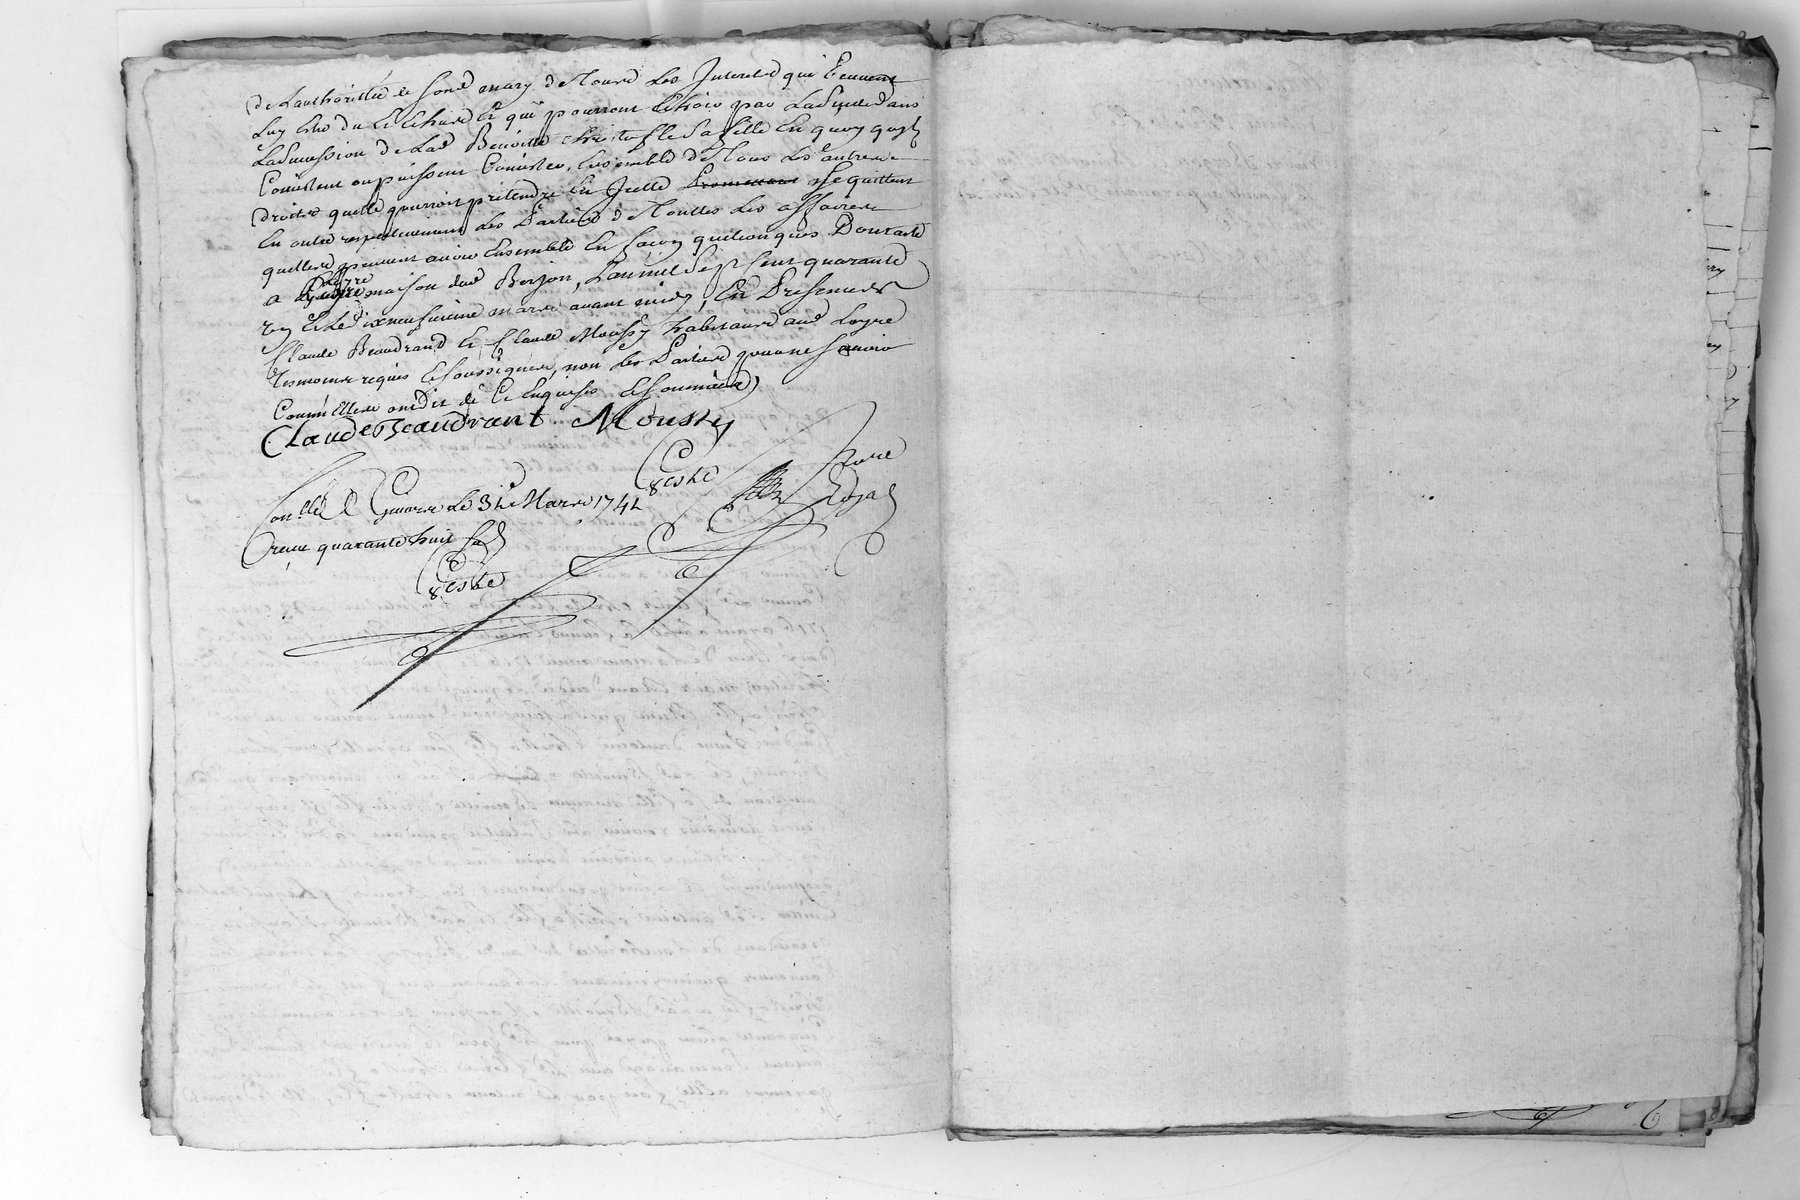 de Lauthoritté de Sond mary de Tours Les Interets qui peuvent
Luy Estre du Et Echus Et qui pourront Echoir par La Suite dans
La Succession de Lad Benoitte Christofle Sa fille En quoy quyls
Consistent ou puissent Consister, Ensemble de Tous Les autres
droits quelle pourroit pretendre En Icelle promettant Se quittent
En outre respectivement Les Parties de Touttes Les affaires
quelles peuvent avoir Ensemble En façon quelconques Dont acte
a Loyre maison dud Berjon, Lan mil Sept Cent quarante
un Et Le dixneufvieme mars avant midy, En Presence de
Claude Beaudrand Et Claude Moussy habitants aud Loyre
Tesmoins requis Et Soussignes, non Les Parties pour ne Scavoir
Comm Elles ont dit de Ce Enquises Et Sommées
Claude Beaudrant Moussy
Ceste
Nore
Royal
Conllé A Givors Le 31e Mars 1741
Receu quarante huit sols
Ceste